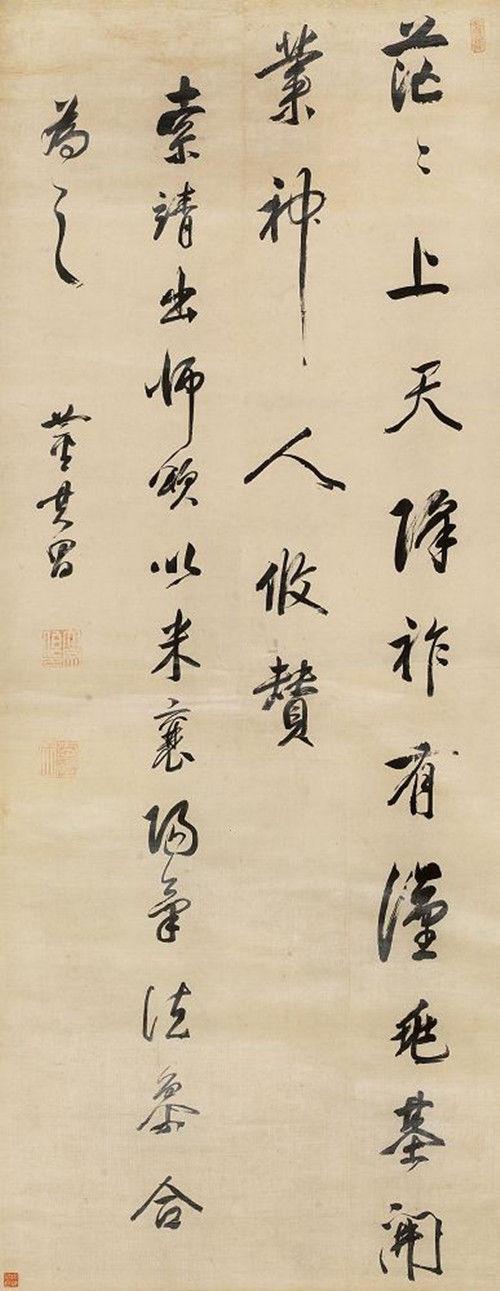 茫〻上天降祚有漢兆基開
業神人攸贊
索靖出師頌以米襄陽筆法參合
為之 董其昌